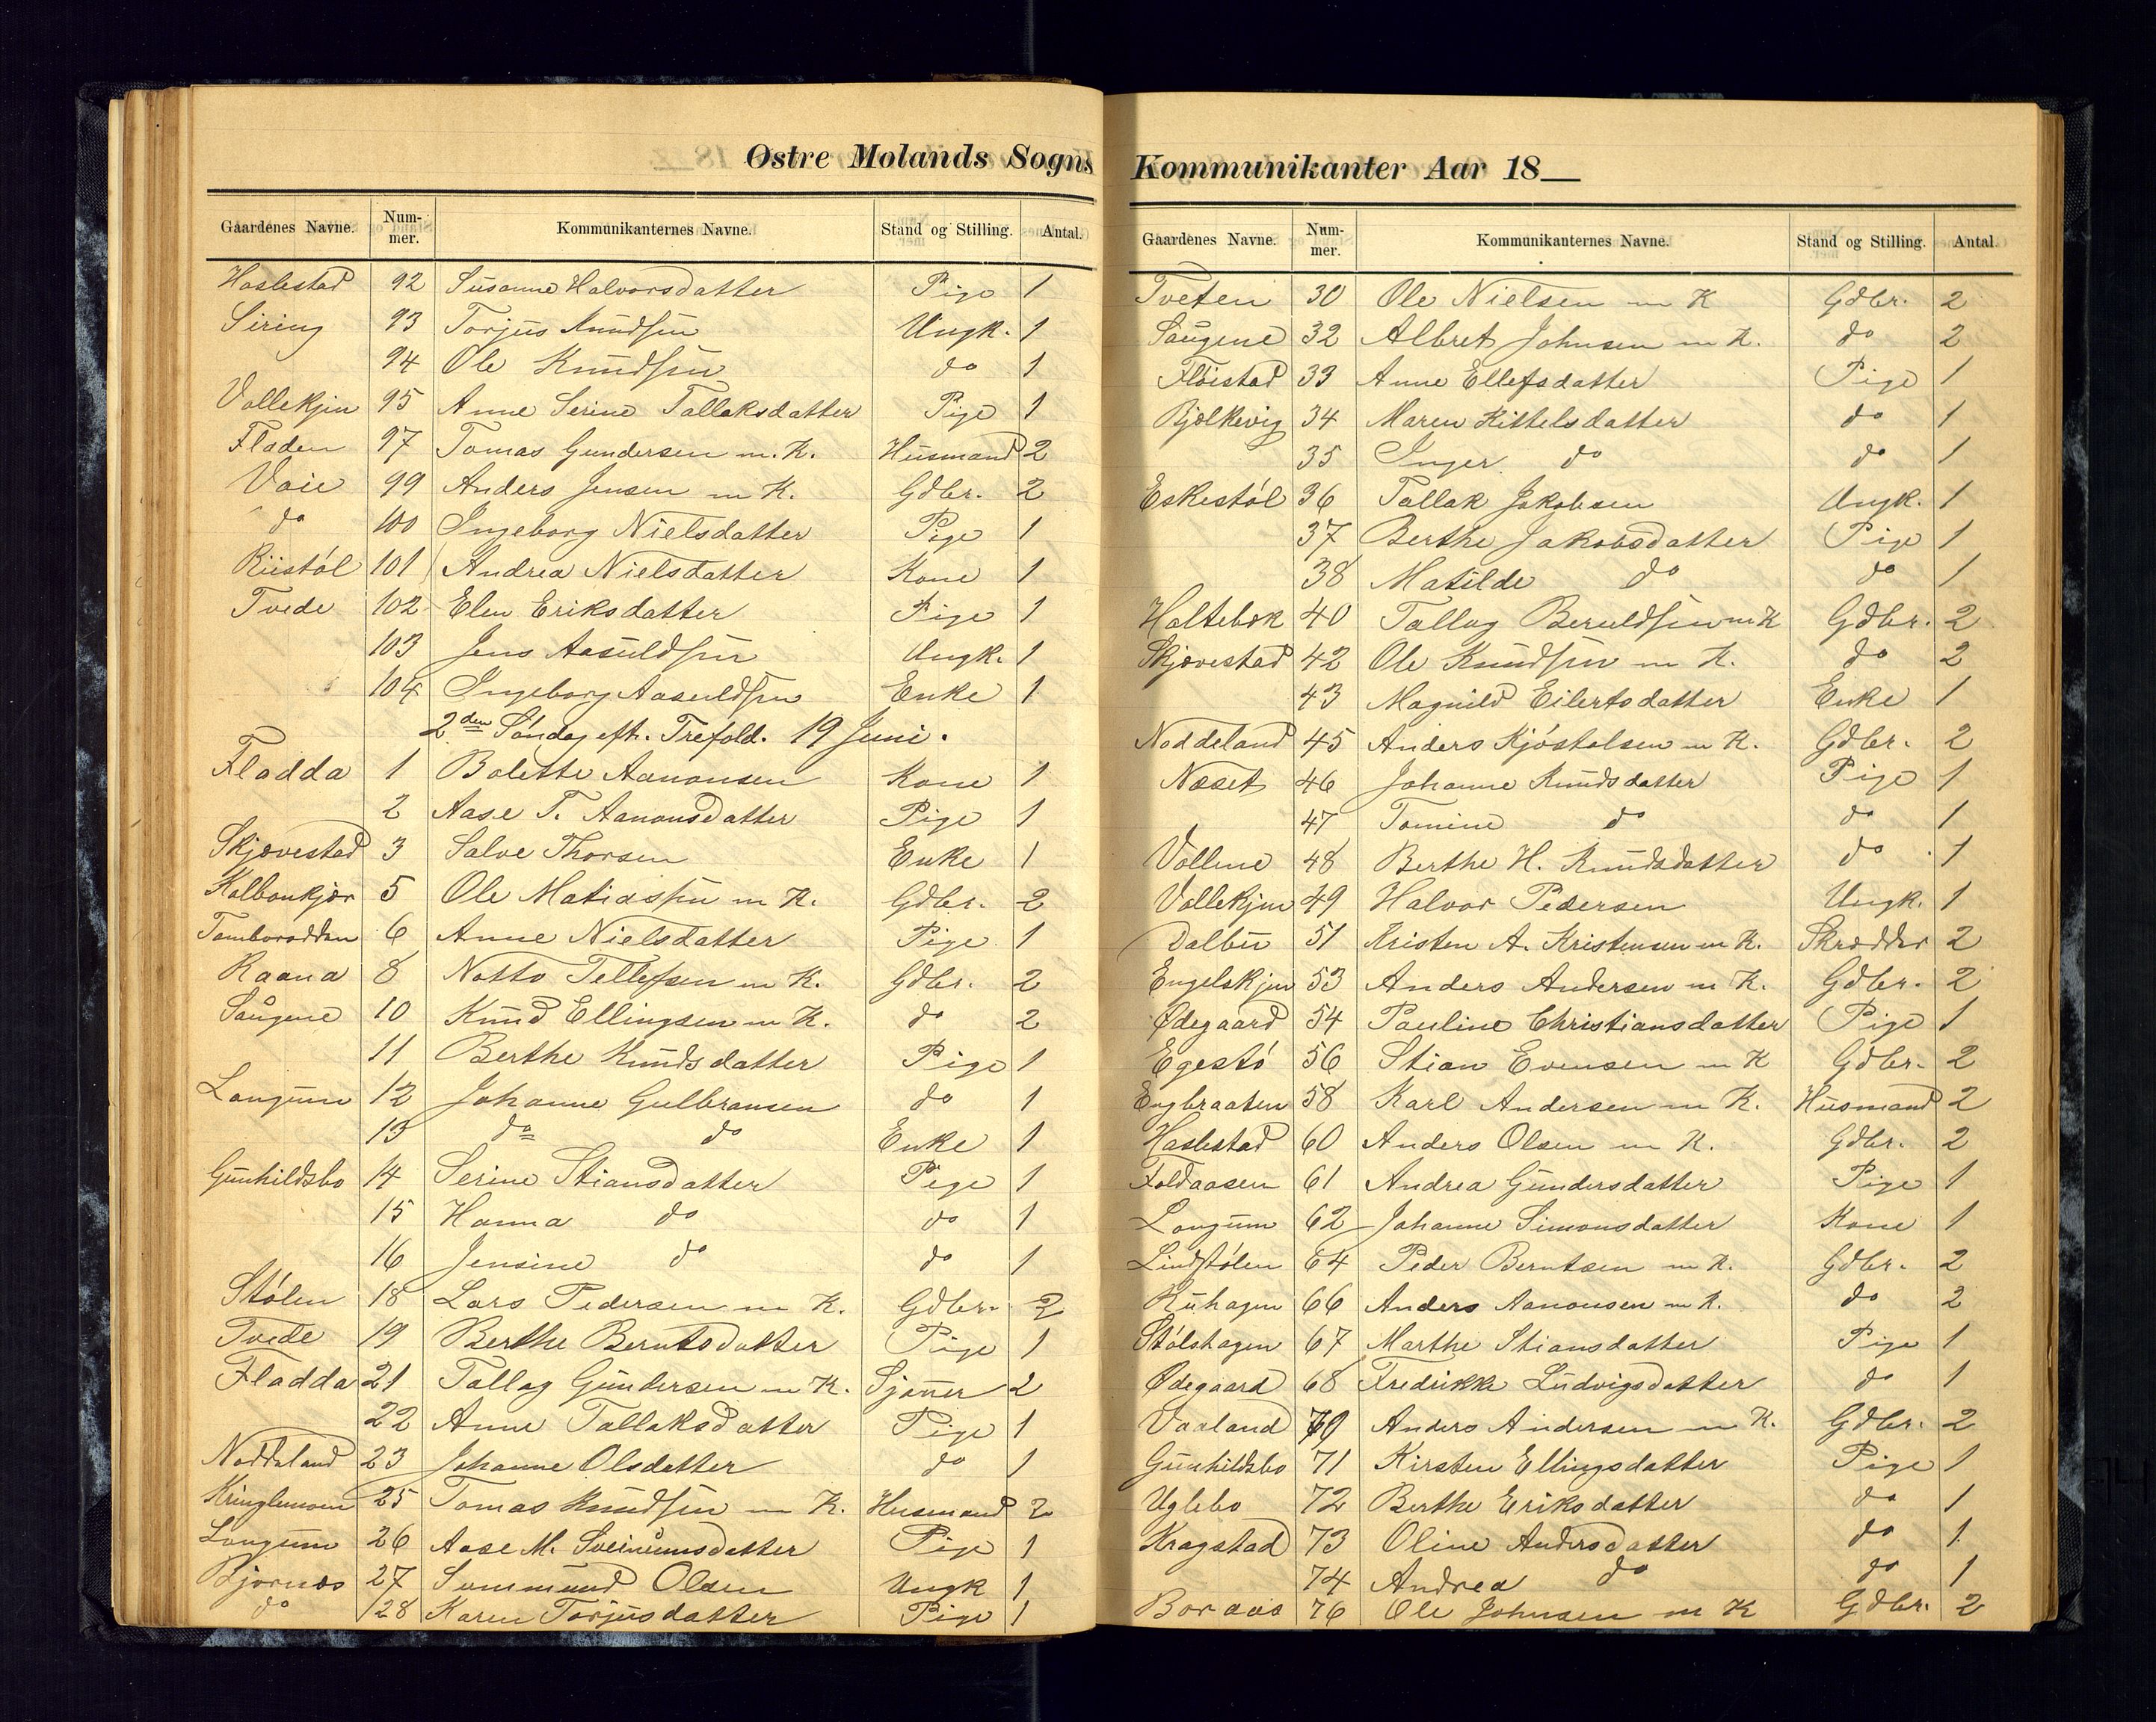 Østre Molands Sogns
Gaardenes Navne. Num-mer. Kommunikanternes Navne. Stand og Stilling. Antal.
Haslestad 92 Susanne Halvorsdatter Pige 1
Siring 93 Torjus Knudsen Ungk. 1
94 Ole Knudsen do 1
Vollekjin 95 Anne Serine Tallaksdatter Pige 1
Fladen 97 Tomas Gundersen m. K. Husmand 2
Voie 99 Anders Jensen m K. Gdbr. 2
do 100 Ingeborg Nielsdatter Pige 1
Riistöl 101 Andrea Nielsdatter Kone 1
Tvede 102 Elen Eriksdatter Pige 1
103 Jens Aasuldsen Ungk. 1
104 Ingeborg Aasuldsen Enke 1
2den Søndag eft. Trefold. 19 Juni.
Fladda 1 Bolette Aanonsen Kone 1
2 Aase T. Aanonsdatter Pige 1
Skjævestad 3 Salve Thorsen Enke 1
Kalbonkjær 5 Ole Matiassen m K. Gdbr. 2
Tomborodden 6 Anne Nielsdatter Pige 1
Raana 8 Notto Tellefsen m K. Gdbr. 2
Saugene 10 Knud Ellingsen m K. do 2
11 Berthe Knudsdatter Pige 1
Longum 12 Johanne Gulbransen do 1
13 do do Enke 1
Gunhildsbo 14 Serine Stiansdatter Pige 1
15 Hanna do do 1
16 Jensine do do 1
Stölen 18 Lars Pedersen m K. Gdbr. 2
Tvede 19 Berthe Berntsdatter Pige 1
Fladda 21 Tallag Gundersen m K. Sjømer 2
22 Anne Tallaksdatter Pige 1
Noddeland 23 Johanne Olsdatter do 1
Kringlemoen 25 Tomas Knudsen m K. Husmand 2
Longum 26 Aase M. Sveinumsdatter Pige 1
Bjornes 27 Summund Olsen Ungk 1
do 28 Karen Torjusdatter Pige 1
Kommunikanter Aar 18
Gaardenes Navne. Num-mer. Kommunikanternes Navne. Stand og Stilling. Antal.
Tveten 30 Ole Nielsen m K Gdbr. 2
Saugene 32 Albret Johnsen m K. do 2
Flöistad 33 Anne Ellefsdatter Pige 1
Bjelkevig 34 Maren Kittelsdatter do 1
35 Inger do do 1
Eskestöl 36 Tallak Jakobsen Ungk. 1
37 Berthe Jakobsdatter Pige 1
38 Matilde do do 1
Haltebæk 40 Tallag Beruldsen m K Gdbr. 2
Skjævestad 42 Ole Knudsen m K. do 2
43 Magnild Eilertsdatter Enke 1
Noddeland 45 Anders Kjöstolsen m K. Gdbr. 2
Næset 46 Johanne Knudsdatter Pige 1
47 Tomine do do 1
Vollene 48 Berthe H. Knudsdatter do 1
Vollekjin 49 Halvor Pedersen Ungk. 1
Dalbu 51 Kristen A. Kristensen m K. Skrædder 2
Engelskjin 53 Anders Andersen m K. Gdbr. 2
Ødegaard 54 Pauline Christiansdatter Pige 1
Egestö 56 Stian Evensen m K Gdbr. 2
Engbraaten 58 Karl Andersen m K. Husmand 2
Haslestad 60 Anders Olsen m K. Gdbr. 2
Foldaasen 61 Andrea Gundersdatter Pige 1
Longum 62 Johanne Simonsdatter Kone 1
Lindstölen 64 Peder Berntsen m K. Gdbr. 2
Kuhagen 66 Anders Aanonsen m K. do 2
Stölshagen 67 Marthe Stiansdatter Pige 1
Ødegaard 68 Fredrikke Ludvigsdatter do 1
Vaaland 70 Anders Andersen m K. Gdbr. 2
Gunhildsbo 71 Kirsten Ellingsdatter Pige 1
Uglebo 72 Berthe Eriksdatter do 1
Kragstad 73 Oline Andersdatter do 1
74 Andrea do do 1
Boraas 76 Ole Johnsen m K Gdbr. 2